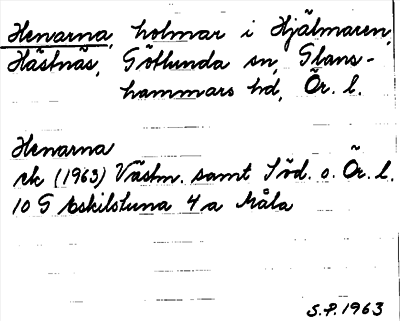 Henarna, holmar i Hjälmaren,
Hästnäs, Götlunda sn, Glans-
hammars hd, Ör. l.
Henarna
rk (1963) Västm. samt Söd. o. Ör. l.
10 G Eskilstuna 4 a Måla
S.P. 1963